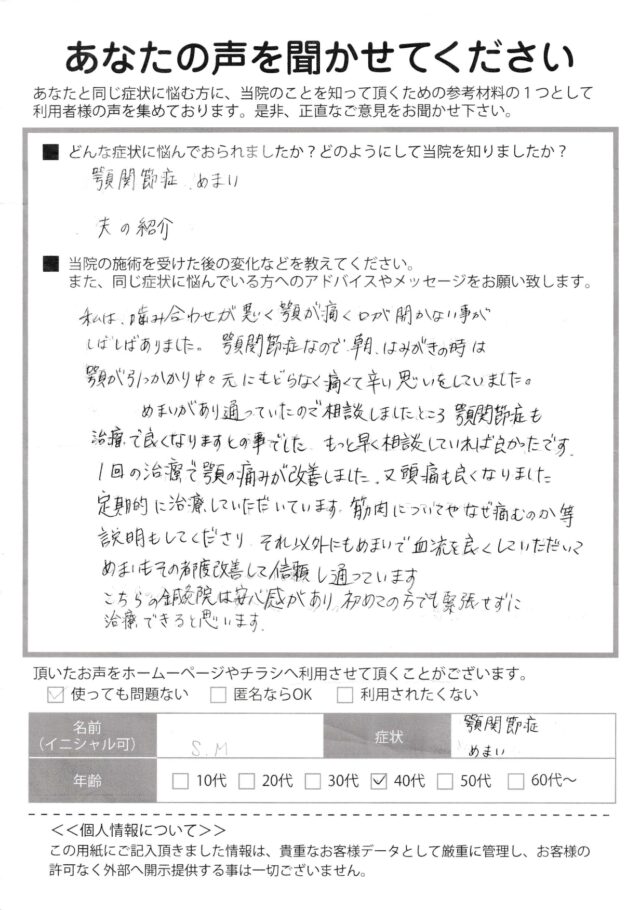 あなたの声を聞かせてください
あなたと同じ症状に悩む方に、当院のことを知って頂くための参考材料の1つとして
利用者様の声を集めております。是非、正直なご意見をお聞かせ下さい。
■ どんな症状に悩んでおられましたか？どのようにして当院を知りましたか？
顎関節症、めまい
夫の紹介
■ 当院の施術を受けた後の変化などを教えてください。
また、同じ症状に悩んでいる方へのアドバイスやメッセージをお願い致します。
私は、噛み合わせが悪く顎が痛く口が開かない事が
しばしばありました。顎関節症なので、朝、はみがきの時は
顎が引っかかり中々元にもどらなく痛くて辛い思いをしていました。
めまいがあり通っていたので相談しましたところ顎関節症も
治療で良くなりますとの事でした。もっと早く相談していれば良かったです。
1回の治療で顎の痛みが改善しました。又頭痛も良くなりました
定期的に治療していただいています。筋肉についてやなぜ痛むのか等
説明もしてくださり、それ以外にもめまいで血流を良くしていただいて
めまいもその都度改善して信頼し通っています
こちらの鍼灸院は安心感があり、初めての方でも緊張せずに
治療できると思います。
頂いたお声をホームーページやチラシへ利用させて頂くことがございます。
☑ 使っても問題ない □ 匿名ならOK □ 利用されたくない
名前
（イニシャル可）
S.M
症状
顎関節症
めまい
年齢 □ 10代 □ 20代 □ 30代 ☑ 40代 □ 50代 □ 60代～
＜＜個人情報について＞＞
この用紙にご記入頂きました情報は、貴重なお客様データとして厳重に管理し、お客様の
許可なく外部へ開示提供する事は一切ございません。